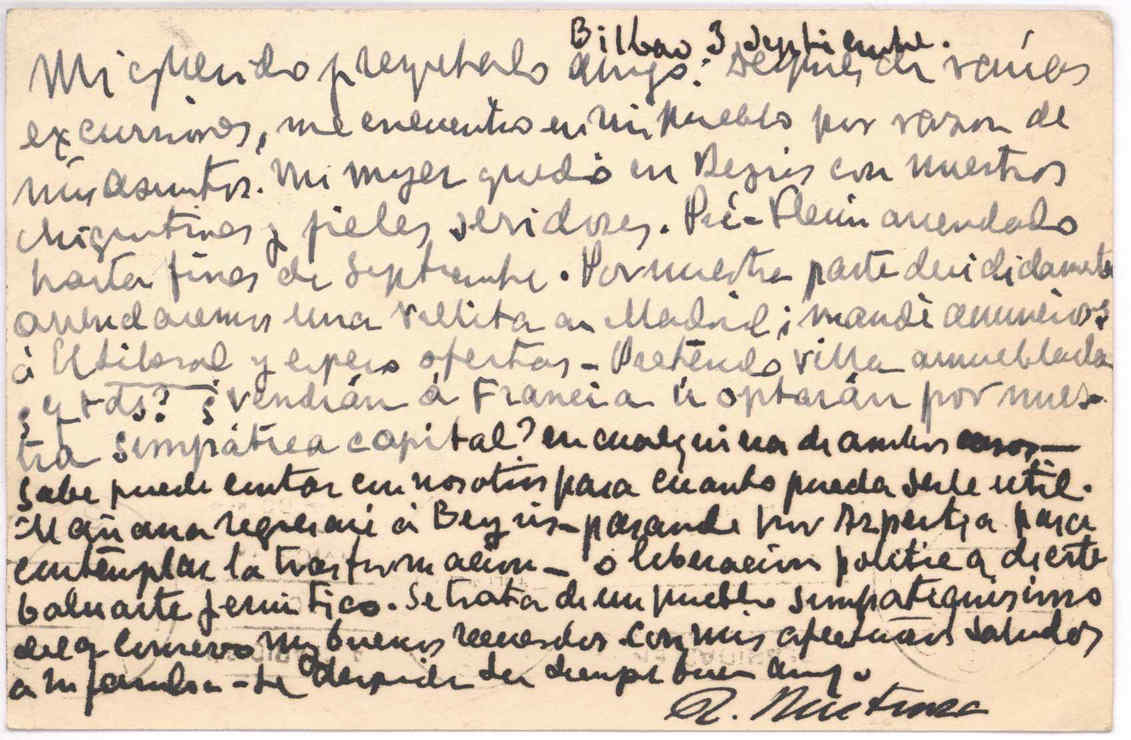 Bilbao 3 Septiembre.
Mi querido y respetado amigo: Después de varias
excursiones, me encuentro en mi pueblo por razon de
mis asuntos. Mi mujer quedó en Beyris con nuestros
chiquitines y fieles servidores. arrendado
hasta fines de Septiembre. Por nuestra parte decididamente
arrendaremos una villita en Madrid; mandé anuncios
á El Liberal y espero ofertas - Pretendo villa amueblada
¿y Vds? ¿vendrán á Francia ú optarán por nues-
tra simpática capital? en cualquiera de ambos casos
sabe puede contar con nosotros para cuanto pueda serle util.
Mañana regresaré á Beyris - pasando por Azpeitia para
contemplar la trasformacion - o liberacion politica de este
baluarte jesuitico. Se trata de un pueblo simpatiquisimo
del q conservo muy buenos recuerdos con mis afectuosos saludos
a su familia - se despide su siempre buen amigo